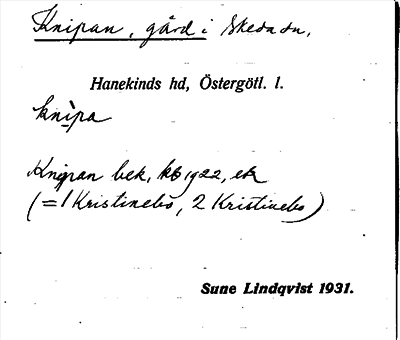 Knipan, gård i Skeda sn,
Hanekinds hd, Östergötl. l.
knìpa
Knipan bek, kb 1922, ek
(= 1 Kristinebo, 2 Kristinebo)
Sune Lindqvist 1931.